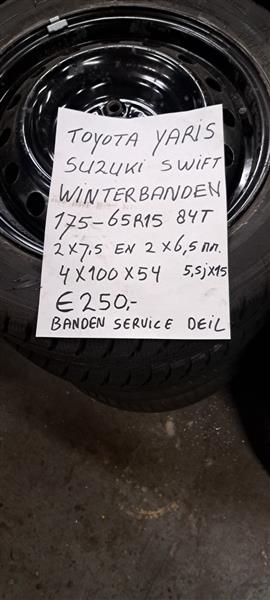 TOYOTA YARIS
SUZUKI SWIFT
WINTERBANDEN
175-65R15 84T
2x7,5 EN 2x6,5 mm.
4x100x54 5,5jx15
€250,-
BANDEN SERVICE DEIL